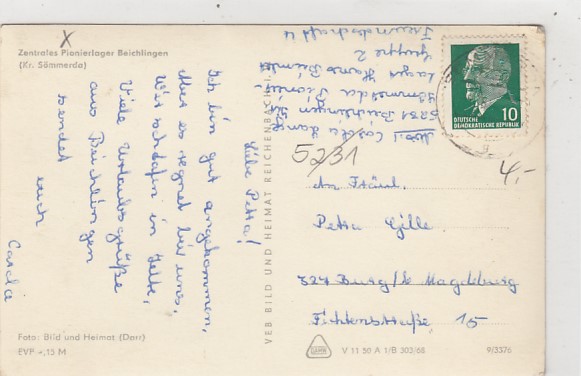 Zentrales Pionierlager Beichlingen
(Kr. Sömmerda)
Liebe Petra!
Ich bin gut angekommen,
es regnet bei uns,
Wir schlafen in Zelte,
Viele Urlaubsgrüße
aus Beichlingen
sendet euch
Carola
Foto: Bild und Heimat (Darr)
EVP -,15 M
VEB BILD UND HEIMAT REICHENBACH
Abs.: Carola
5231 Beichlingen
Gruppe 2
Freundschaft 4
DEUTSCHE
DEMOKRATISCHE REPUBLIK
10
5231
4,-
An Fräul.
Petra Gille
327 Burg/b Magdeburg
Fichtenstraße 15
V 11 50 A 1/B 303/68
9/3376